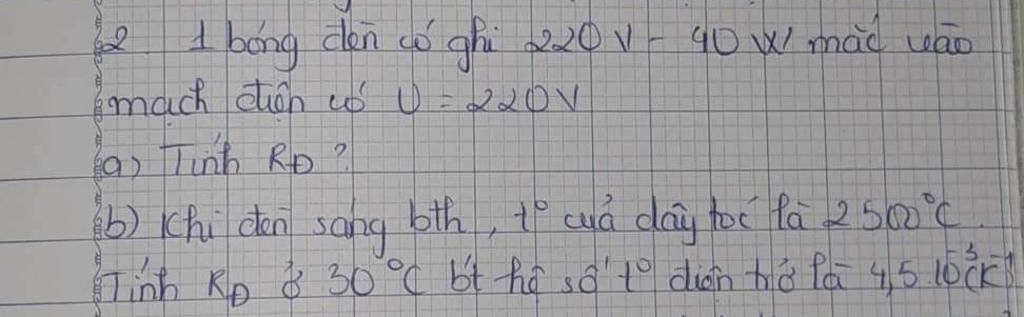 2 1 bóng đèn có ghi 220V - 40W mắc vào
mạch điện có U = 220V
a) Tính RĐ ?
b) Khi đèn sáng bth, t° của dây tóc là 2500°C.
Tính RĐ ở 30°C bt hệ số t° điện trở là 4,5.10⁻³(K⁻¹)